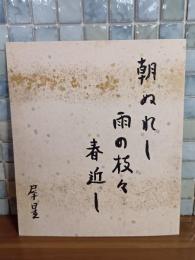 朝ぬれし
雨の枝々
春近し